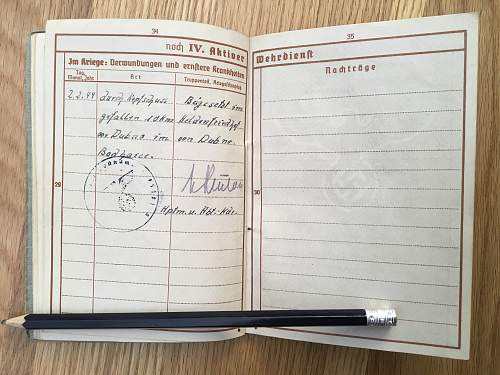 34
noch IV. Aktiver
Im Kriege: Verwundungen und ernstere Krankheiten
Tag, Monat, Jahr
Art
Truppenteil, Kriegslazarett
2.2.44 durch Kopfschuss Beigesetzt im
gefallen 10 km Heldenfriedhof
vor Dubno im von Dubno
29
Hptm. u. Abt.-Kdr.
35
Wehrdienst
Nachträge
30